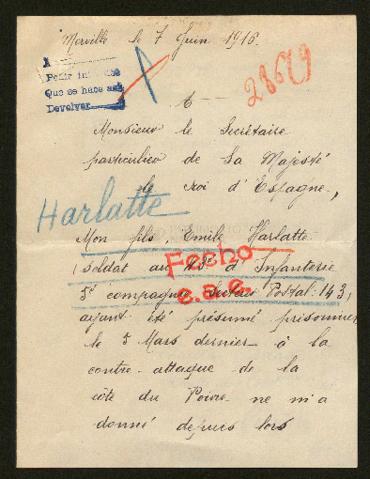 Merville le 7 Juin 1916.
28679
A
Pedir
Que se hace
Devolver
A
Monsieur le Secrétaire
particulier de Sa Majesté
le roi d'Espagne,
Harlatte
Mon fils Emile Harlatte
(Soldat au d'Infanterie
Fecho
5e compagnie Secteur Postal 143)
e.a.e.
ayant été présumé prisonnier
le 5 Mars dernier à la
contre-attaque de la
côte du Poivre ne m'a
donné depuis lors